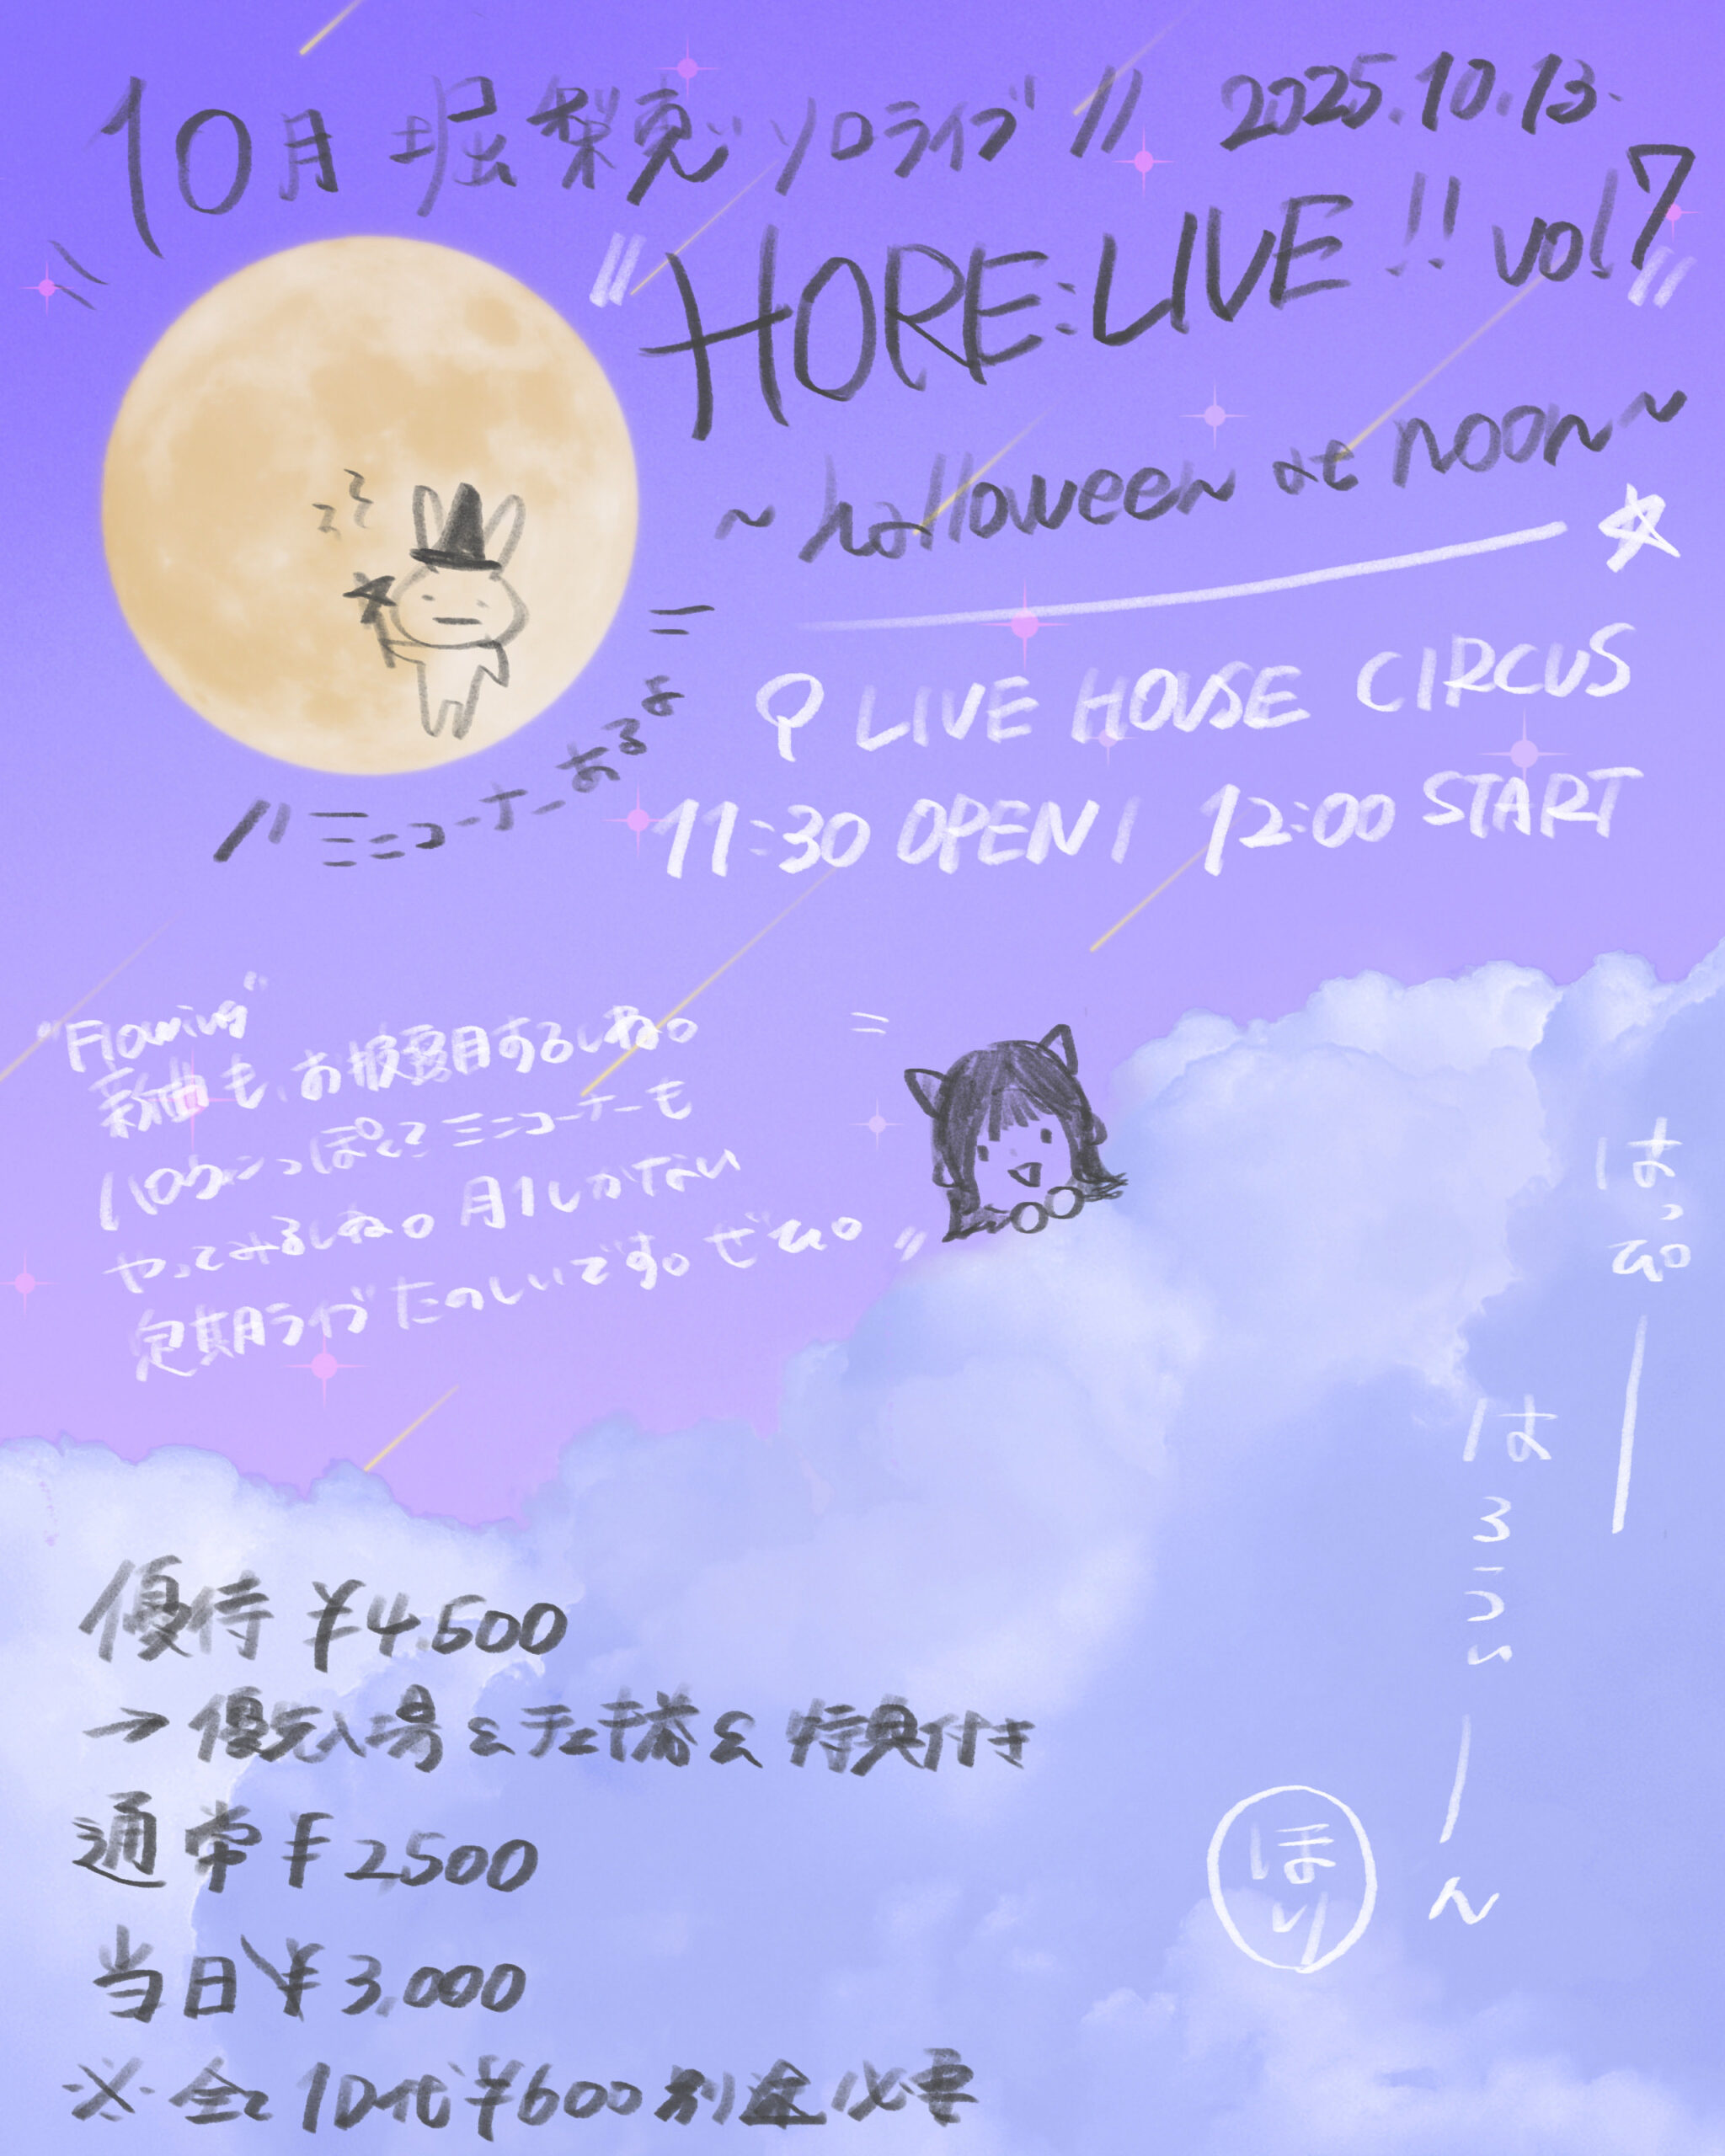 10月 堀梨恵 ソロライブ!! 2025.10.13.
"HORE:LIVE!! vol.7"
~halloween at noon~
☆
LIVE HOUSE CIRCUS
11:30 OPEN / 12:00 START
ミニコーナーあるよ
"Flowing"
新曲も、お披露目するしね。
ハロウィンっぽくミニコーナーも
やってみるしね。月1しかない
定期ライブたのしいです。ぜひ。
はっぴー
はろうぃーん
ほり
優待 ¥4,500
→優先入場&チェキ1枚&特典付き
通常 ¥2,500
当日 ¥3,000
※全て1D代¥600別途必要